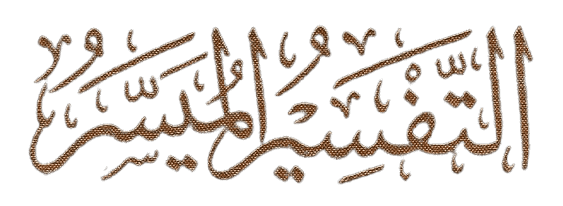 التَّفْسِيرُ الْمُيَسَّرُ